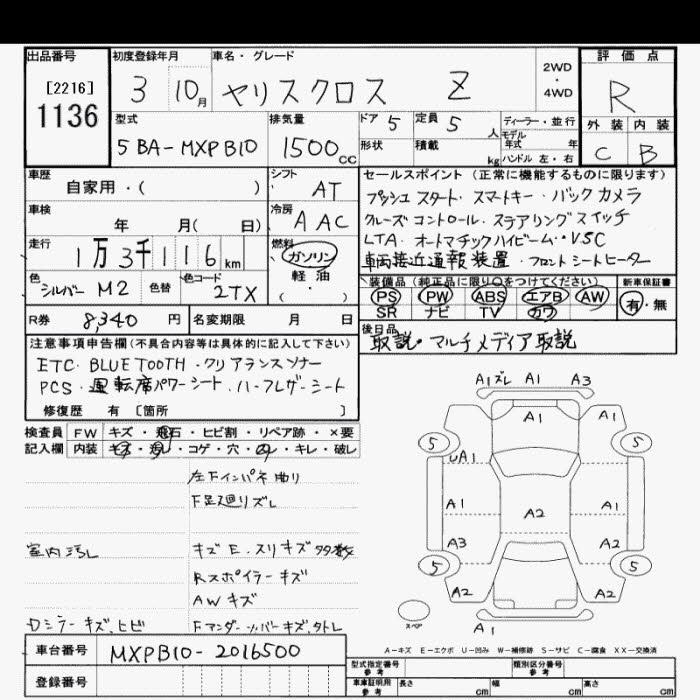 出品番号 初度登録年月 車名・グレード 2WD・4WD 評価点
[2216]
1136
3 10月 ヤリスクロス Z R
型式 排気量 ドア 5 定員 5人 ディーラー・並行
外装 内装
5BA-MXPB10 1500cc 形状 積載 kg モデル年式 年
ハンドル 左・右
C B
車歴 自家用・( ) シフト AT
セールスポイント(正常に機能するものに限ります)
車検 年 月( 日) 冷房 AAC
プッシュスタート・スマートキー・バックカメラ
クルーズコントロール・ステアリングスイッチ
走行 1万3千116km 燃料 ガソリン・軽油・( )
LTA・オートマチックハイビーム・VSC
車両接近通報装置・フロントシートヒーター
色 シルバーM2 色替 色コード 2TX
装備品(純正品に限り○をつけてください) 新車保証書
PS PW ABS エアB AW 有・無
SR ナビ TV カワ
R券 8,340円 名変期限 月 日
後日品
取説・マルチメディア取説
注意事項申告欄(不具合内容等は具体的に記入して下さい)
ETC・BLUETOOTH・クリアランスソナー
PCS・運転席パワーシート・ハーフレザーシート
修復歴 有 [箇所 ]
検査員 FW キズ・飛石・ヒビ割・リペア跡・×要
記入欄 内装 キズ・コゲ・穴・キレ・破し
左Fインパネ曲り
F足廻りズレ
室内汚レ キズE・スリキズ多数
Rスポイラーキズ
AWキズ
Dミラーキズ、ヒビ Fアンダーカバーキズ、タトレ
A1ズレ A1 A3
A1
5 5
UA1 A1
A1 A2 A1
A3 A2
5 5
A2 A2 A2
スペア A1
A-キズ E-エクボ U-凹み W-補修跡 S-サビ C-腐食 XX-交換済
車台番号 MXPB10-2016500
登録番号
型式指定番号 参考 類別区分番号 参考
車庫証明用 参考 長さ cm 幅 cm 高さ cm